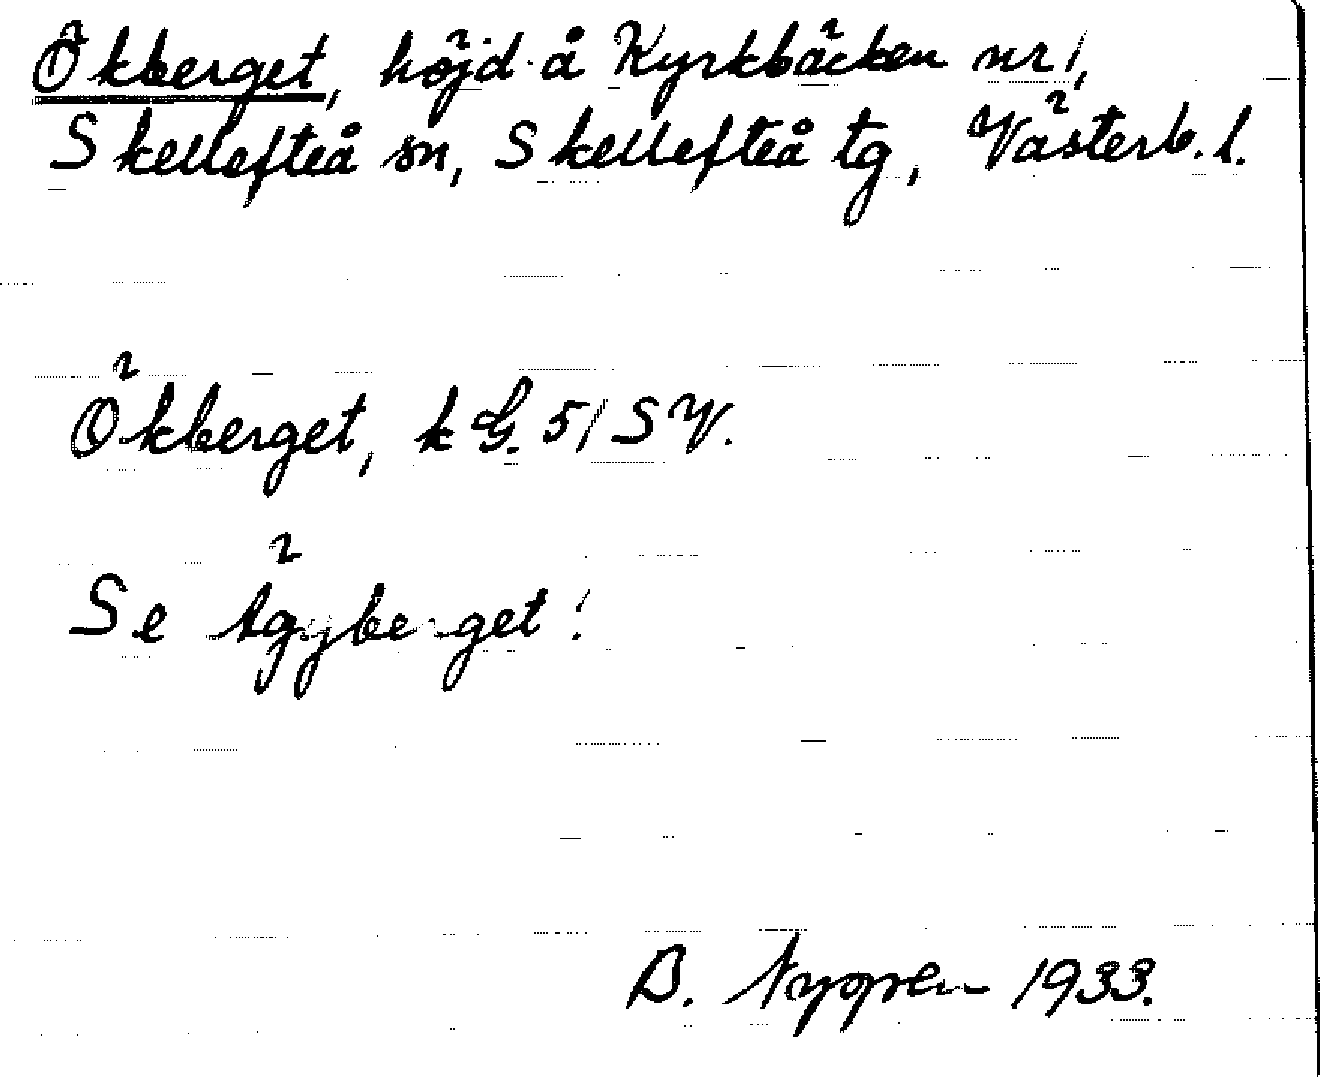 Ökberget, höjd å Kyrkbäcken nr 1,
Skellefteå sn, Skellefteå tg, Västerb. l.
Ökberget, k G. 51 SV.
Se
B. Nygren 1933.